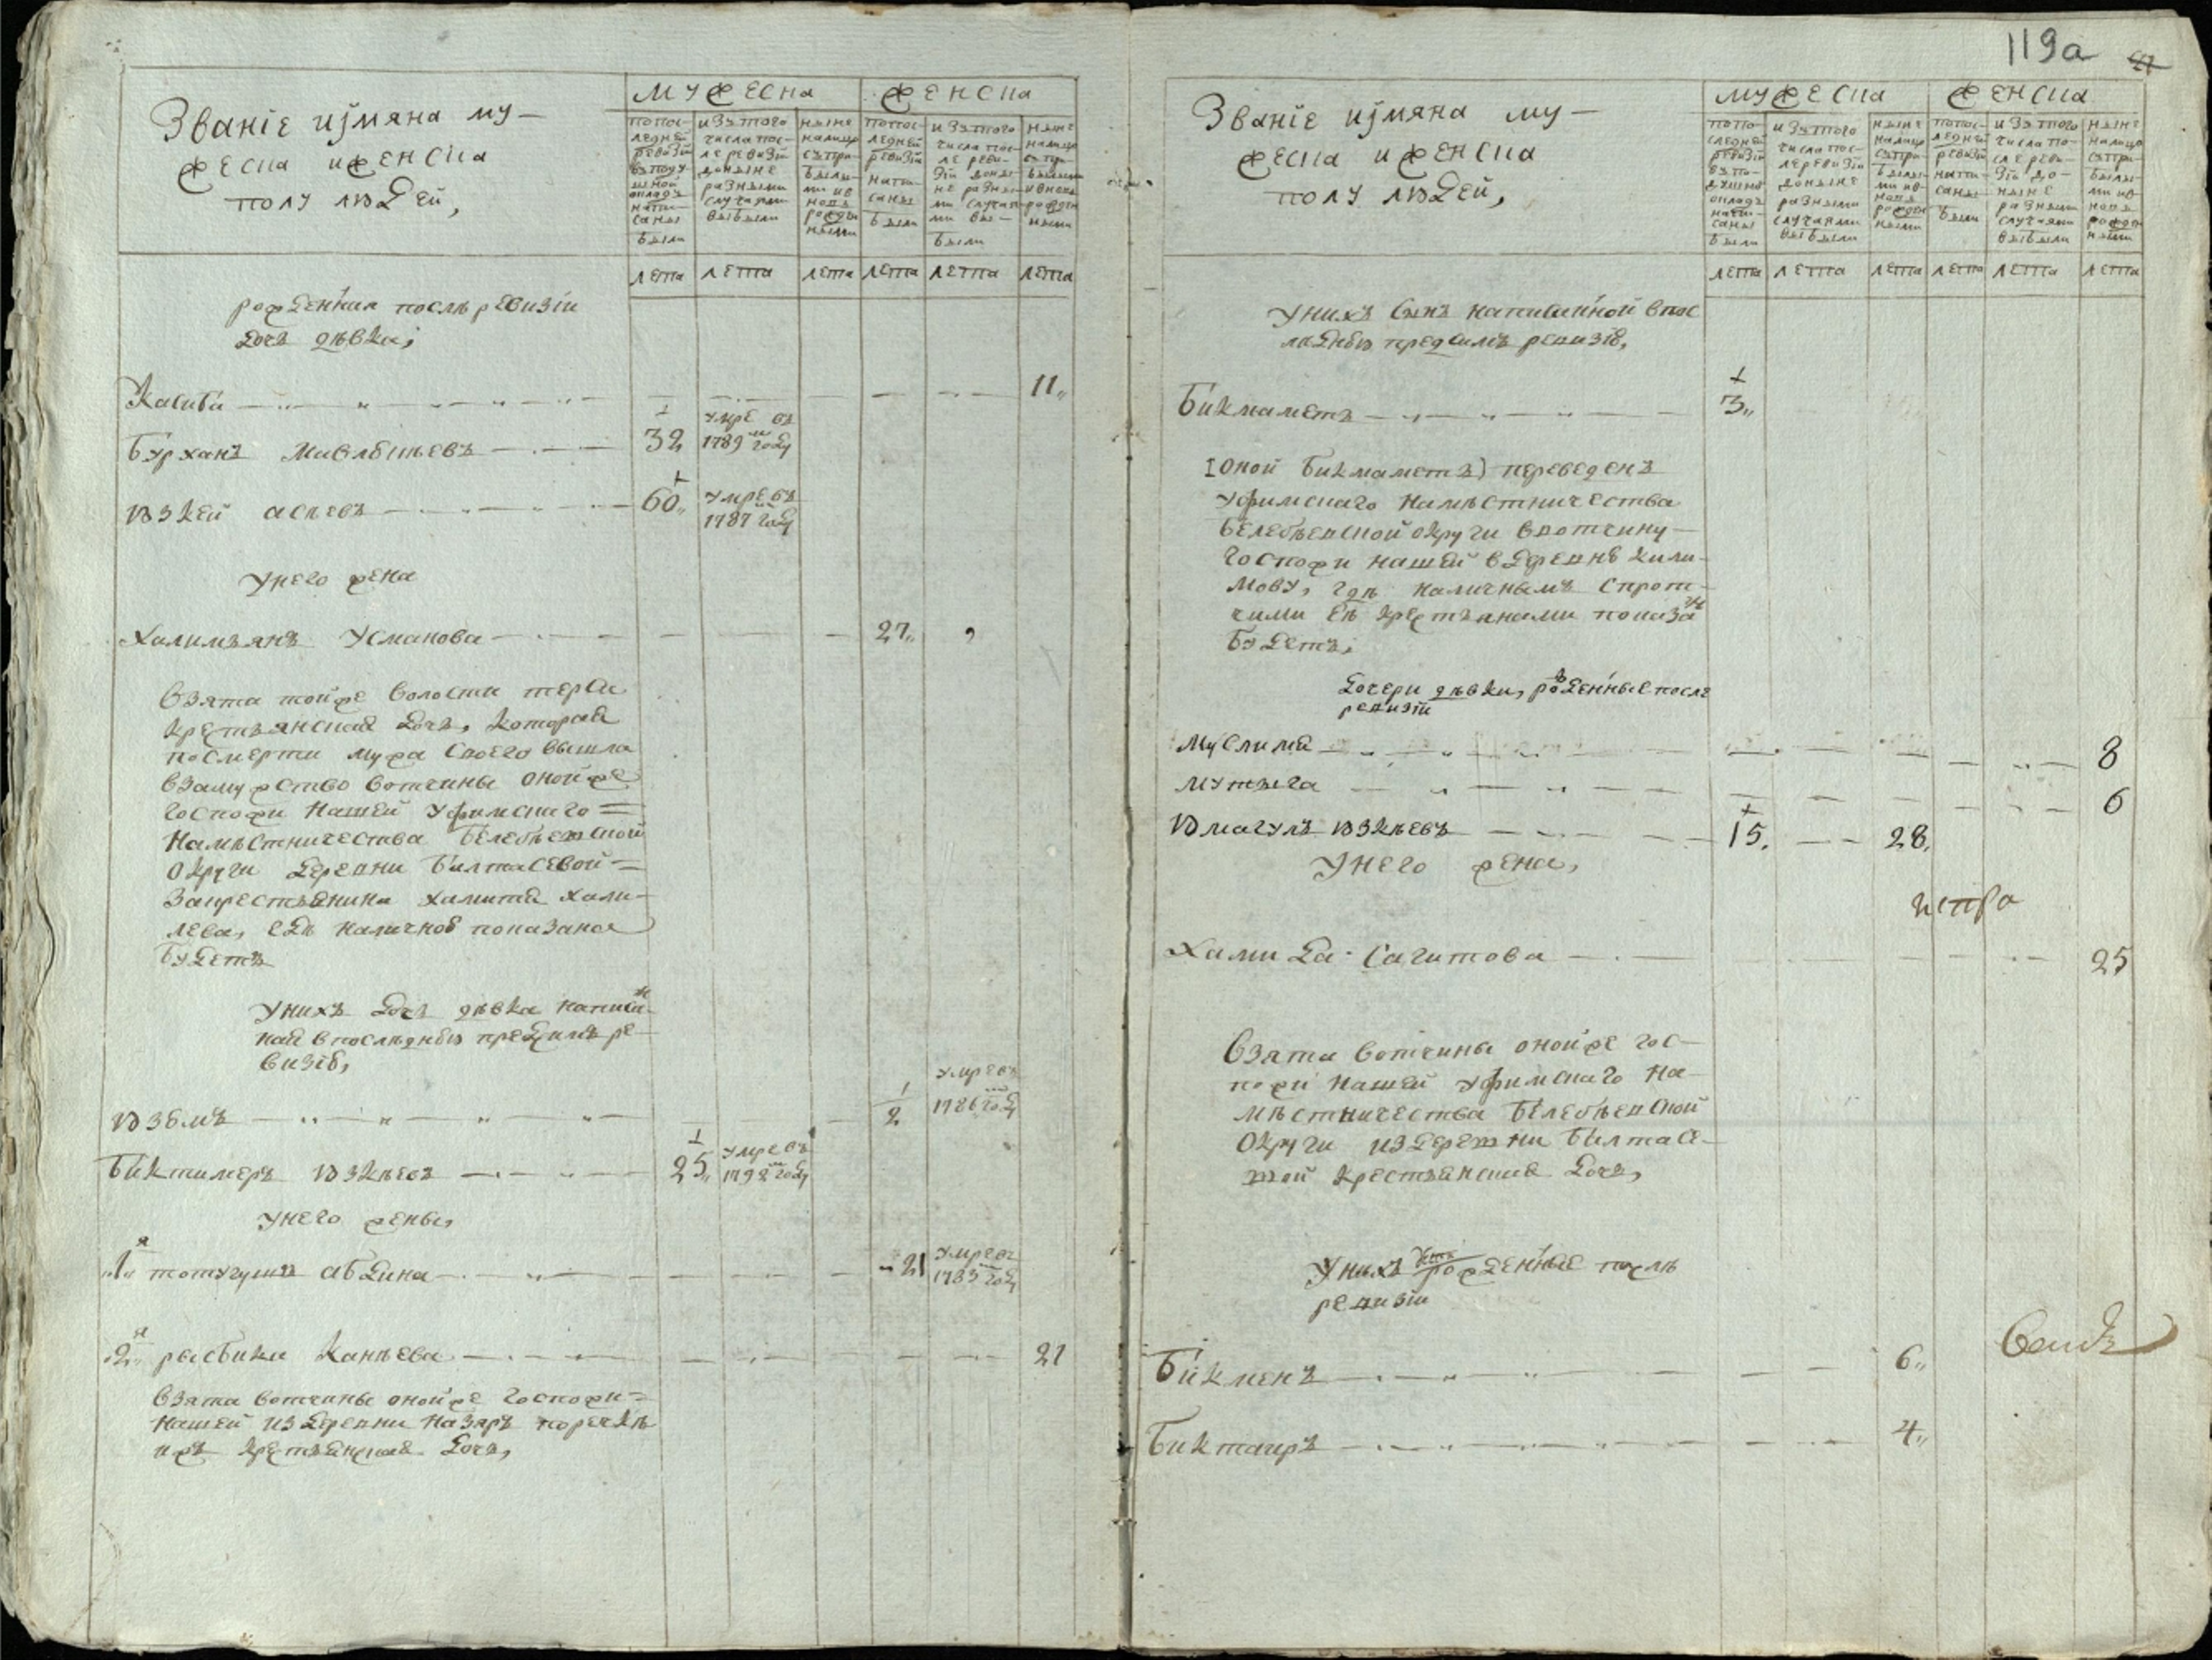 Званіе иимяна му-
жеска иженска
полу людей,
мужеска
женска
попос-
ледней
ревизіи
вподу-
шной
окладъ
напи-
саны
были
изътого
числа пос-
ле ревизіи
доныне
разными
случаями
выбыли
ныне
налицо
съпри-
былы-
ми ив-
новь
рожден-
ными
попос-
ледней
ревизіи
напи-
саны
были
изътого
числа пос-
ле реви-
зіи доны-
не разны-
ми случая-
ми вы-
были
ныне
налицо
съпри-
былыми
ивновь
рожден-
ными
лета лета лета лета лета лета
рожденная послѣ ревизіи
дочь дѣвка;
Касиба 11
Бурханъ Мавлбкѣевъ 32 умре въ
1789м году
Юзкей асѣевъ 60 умре въ
1787м году
Унего жена
Халимъянъ Усманова 27
взята тойже волости терси
крестьянская дочь, которая
посмерти мужа своего вышла
взамужство вотчины онойже
Госпожи Нашей Уфимскаго
Намѣстничества Белебѣевской
округи деревни Билтасевой
закрестьянина Хамита Хали-
лева, гдѣ наличною показана
будетъ
Унихъ дочь дѣвка написан-
ная впослѣднюю предсимъ ре-
визію,
Юзбмъ 2 умре въ
1786м году
Биктимеръ Юзкѣевъ 25 умре въ
1792м году
Унего жены,
1я тотугушъ абдина 21 умре въ
1783м году
2я расбика Канѣева 21
взята вотчины онойже Госпожи
Нашей издеревни Назяръ поречкѣ
ижъ крестьянская дочь,
119а
Званіе иимяна му-
жеска иженска
полу людей,
мужеска
женска
попо-
следней
ревизіи
въпо-
душной
окладъ
напи-
саны
были
изътого
числа пос-
ле ревизіи
доныне
разными
случаями
выбыли
ныне
налицо
съпри-
былы-
ми ив-
новь
рожден-
ными
попос-
ледней
ревизіи
напи-
саны
были
изътого
числа по-
сле реви-
зіи до-
ныне
разными
случаями
выбыли
ныне
налицо
съпри-
былы-
ми ив-
новь
рожден-
ными
лета лета лета лета лета лета
Унихъ сынъ написанной впос
лѣднюю предсимъ ревизію,
Бикмаметъ 3
[оной Бикмаметъ) переведенъ
Уфимскаго Намѣстничества
Белебѣевской округи ввотчину
Госпожи нашей вдеревню Кили-
мову, гдѣ наличнымъ спрот-
чими Еѣ крестьянами показан
будетъ;
Дочери дѣвки, рожденные после
ревизіи
Муслима 8
Мутьига 6
Юмагулъ Юзкѣевъ 15 28
Унего жена,
истра
Хамида Сагитова 25
Взята вотчины онойже гос-
пожи нашей Уфимскаго На-
мѣстничества Белебѣевской
Округи издеревни Билтасе-
вой крестьянская дочь,
Унихъ дети рожденные послѣ
ревизіи
Бикменъ 6
Биктаиръ 4